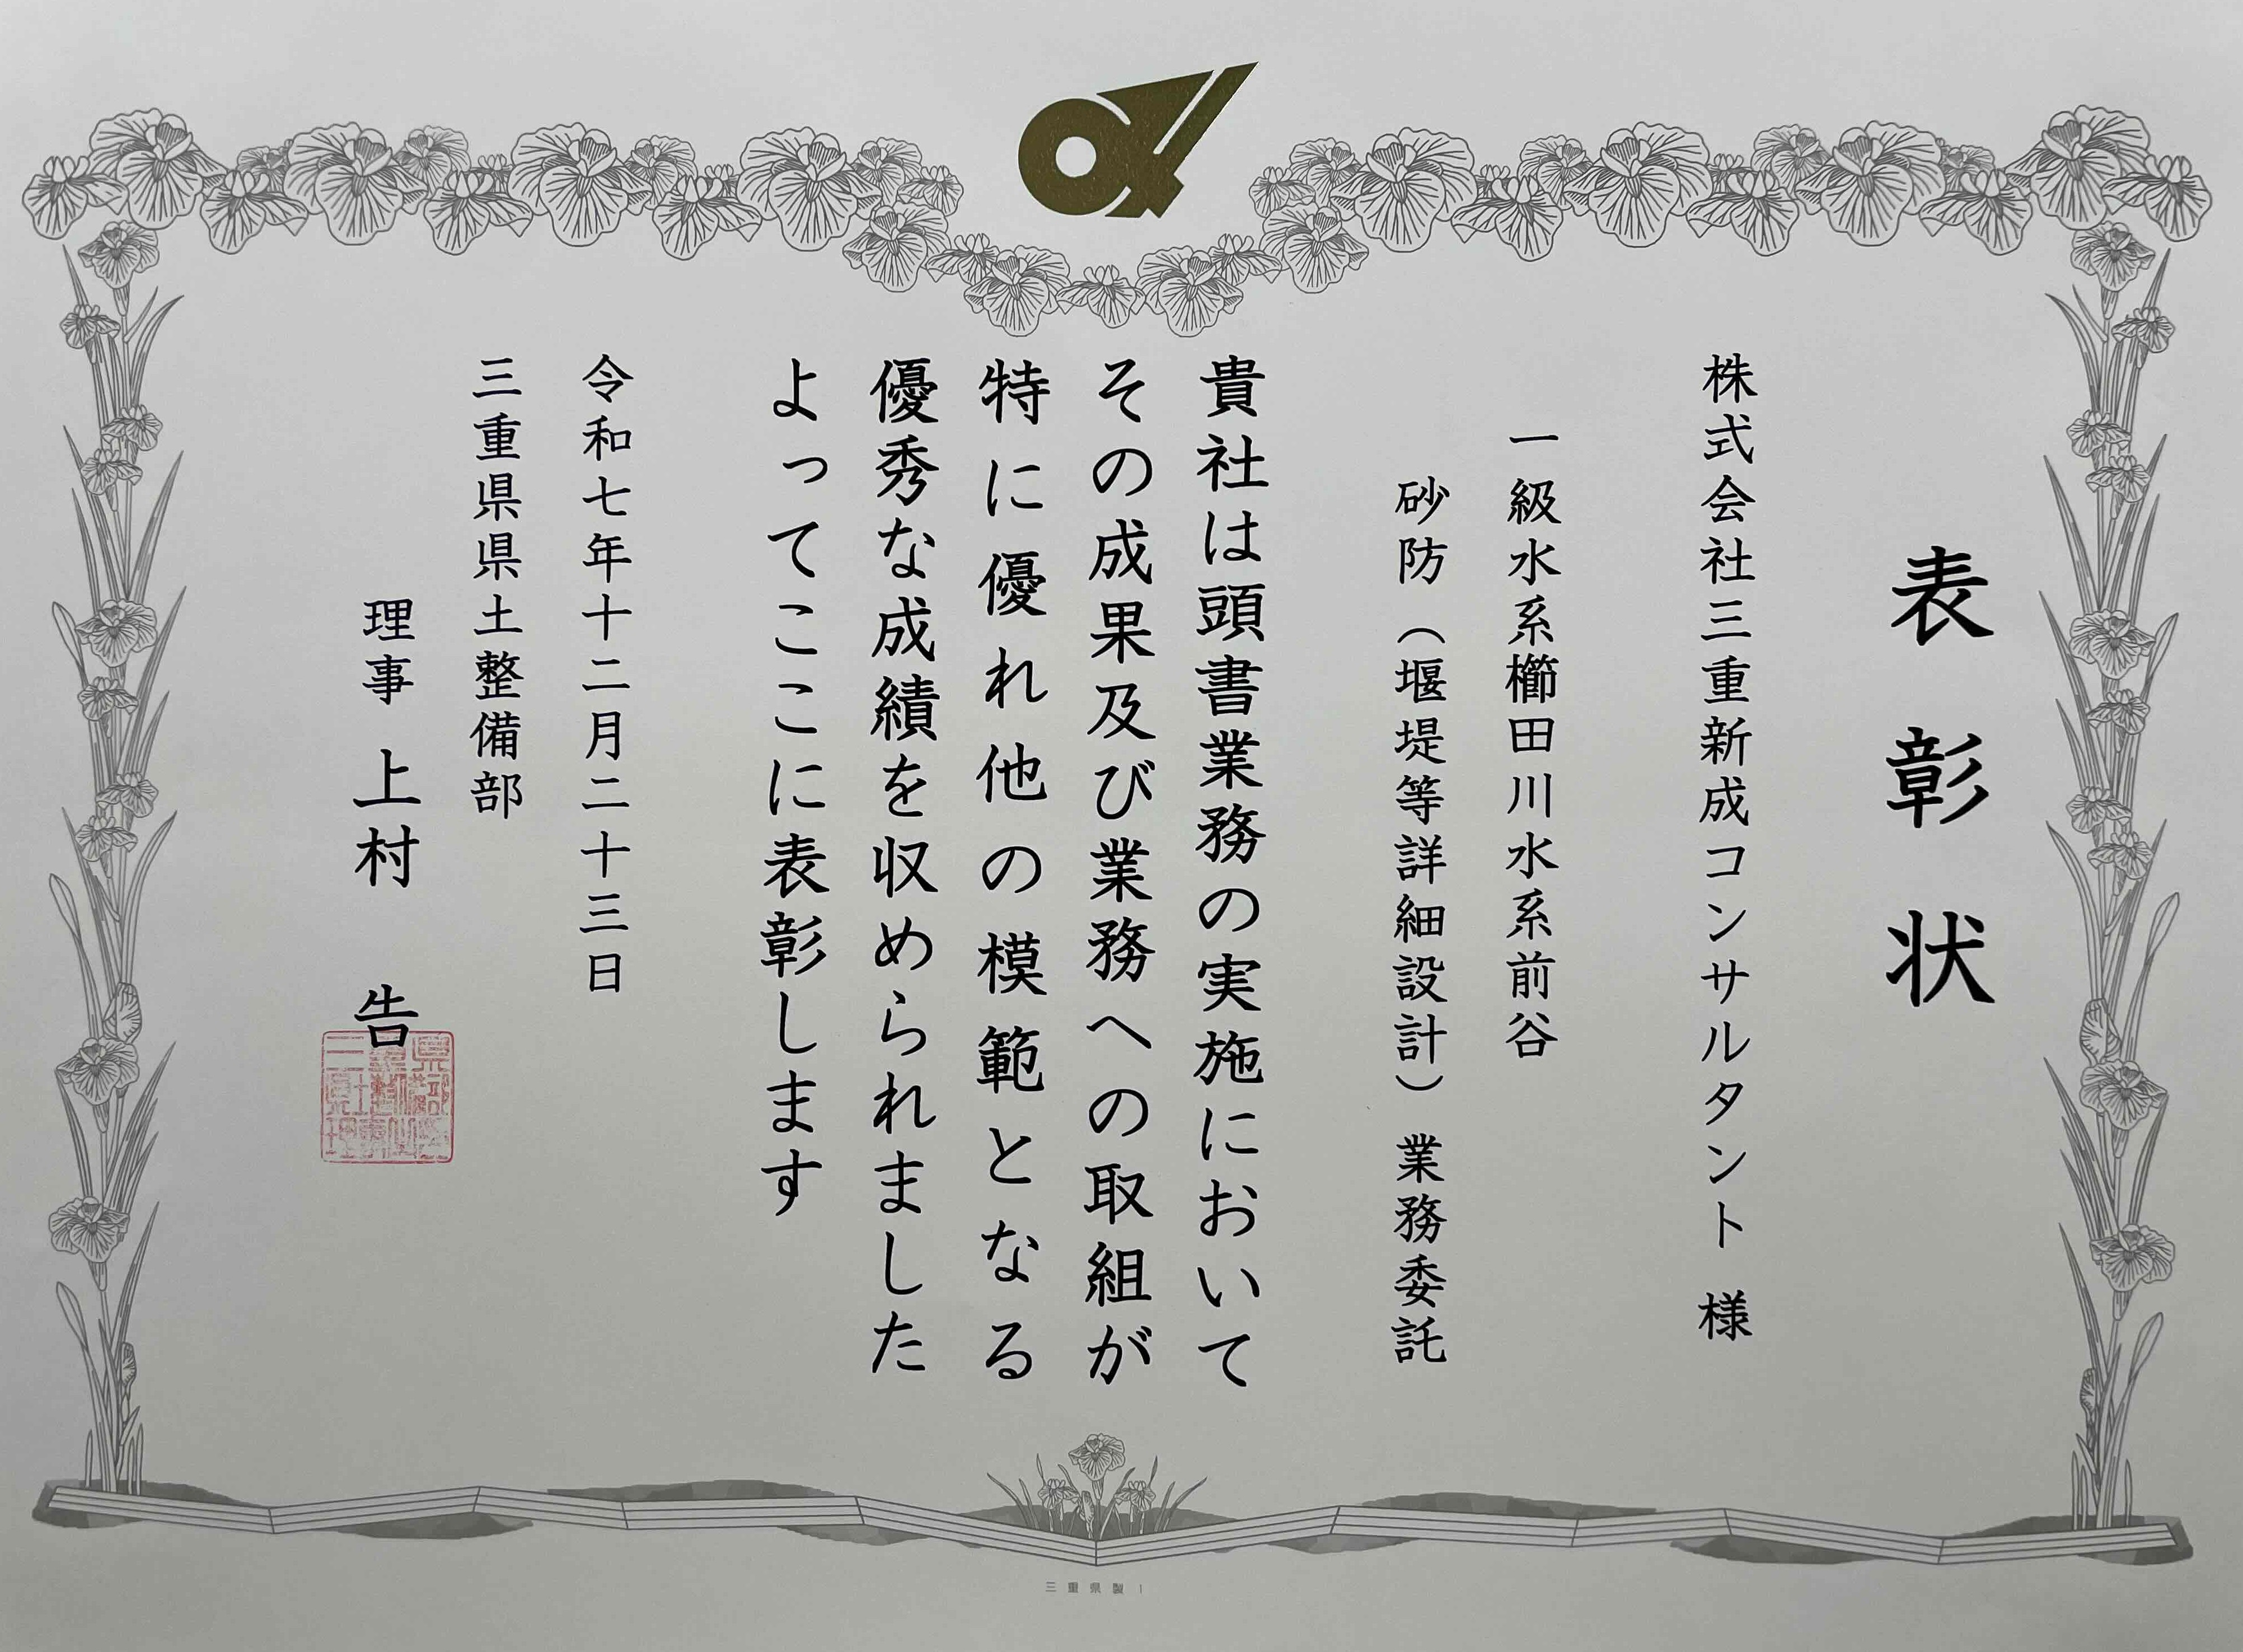 表彰状
株式会社三重新成コンサルタント 様
一級水系櫛田川水系前谷
砂防（堰堤等詳細設計）業務委託
貴社は頭書業務の実施において
その成果及び業務への取組が
特に優れ他の模範となる
優秀な成績を収められました
よってここに表彰します
令和七年十二月二十三日
三重県県土整備部
理事 上村 告
三重県製1